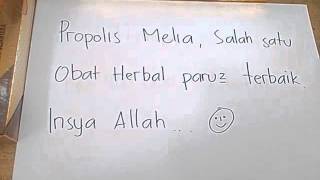 Propolis Melia, Salah satu
Obat Herbal paruz terbaik.
Insya Allah...